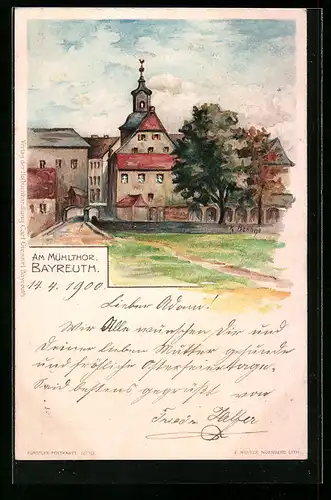 AM MÜHLTHOR.
BAYREUTH.
14. 4. 1900
Lieber Adam!
Wir Alle wünschen Dir und
Deiner lieben Mutter gesunde
und fröhliche Osterfeiertage.
Seid bestens gegrüßt von
Verlag der Hofbuchhandlung Carl Giessel, Bayreuth.
KÜNSTLER-POSTKARTE
NÜRNBERG